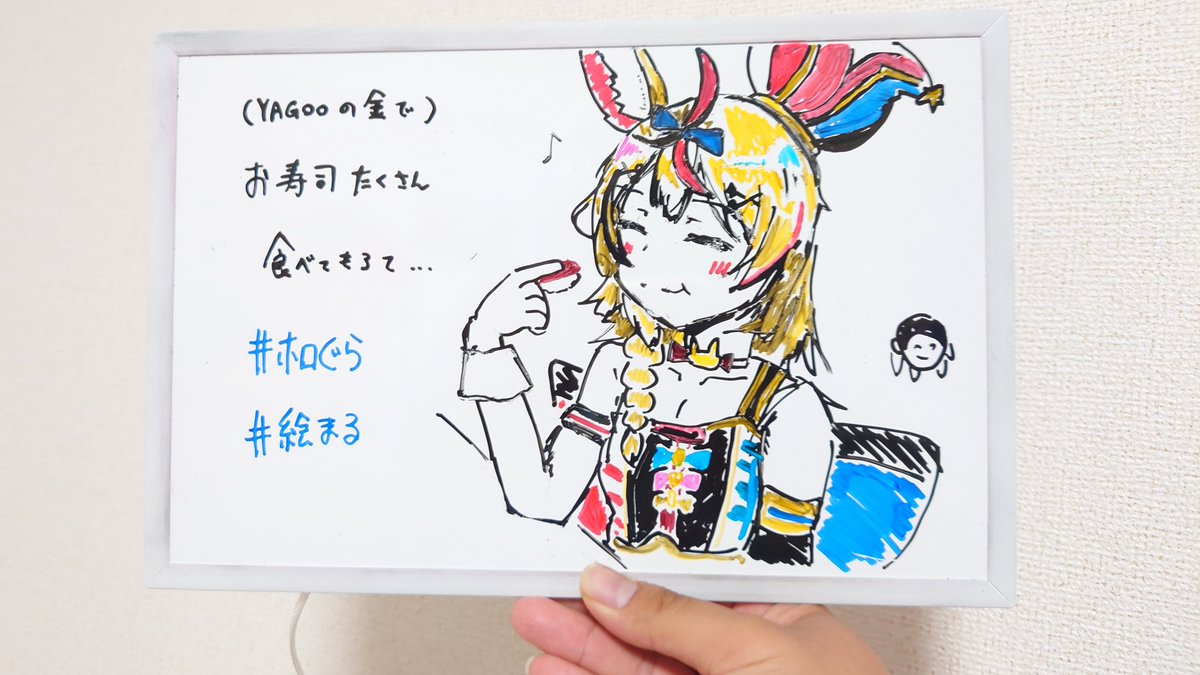 (YAGOOの金で)
お寿司たくさん
食べてきろて...
#ホロぐら
#絵まる